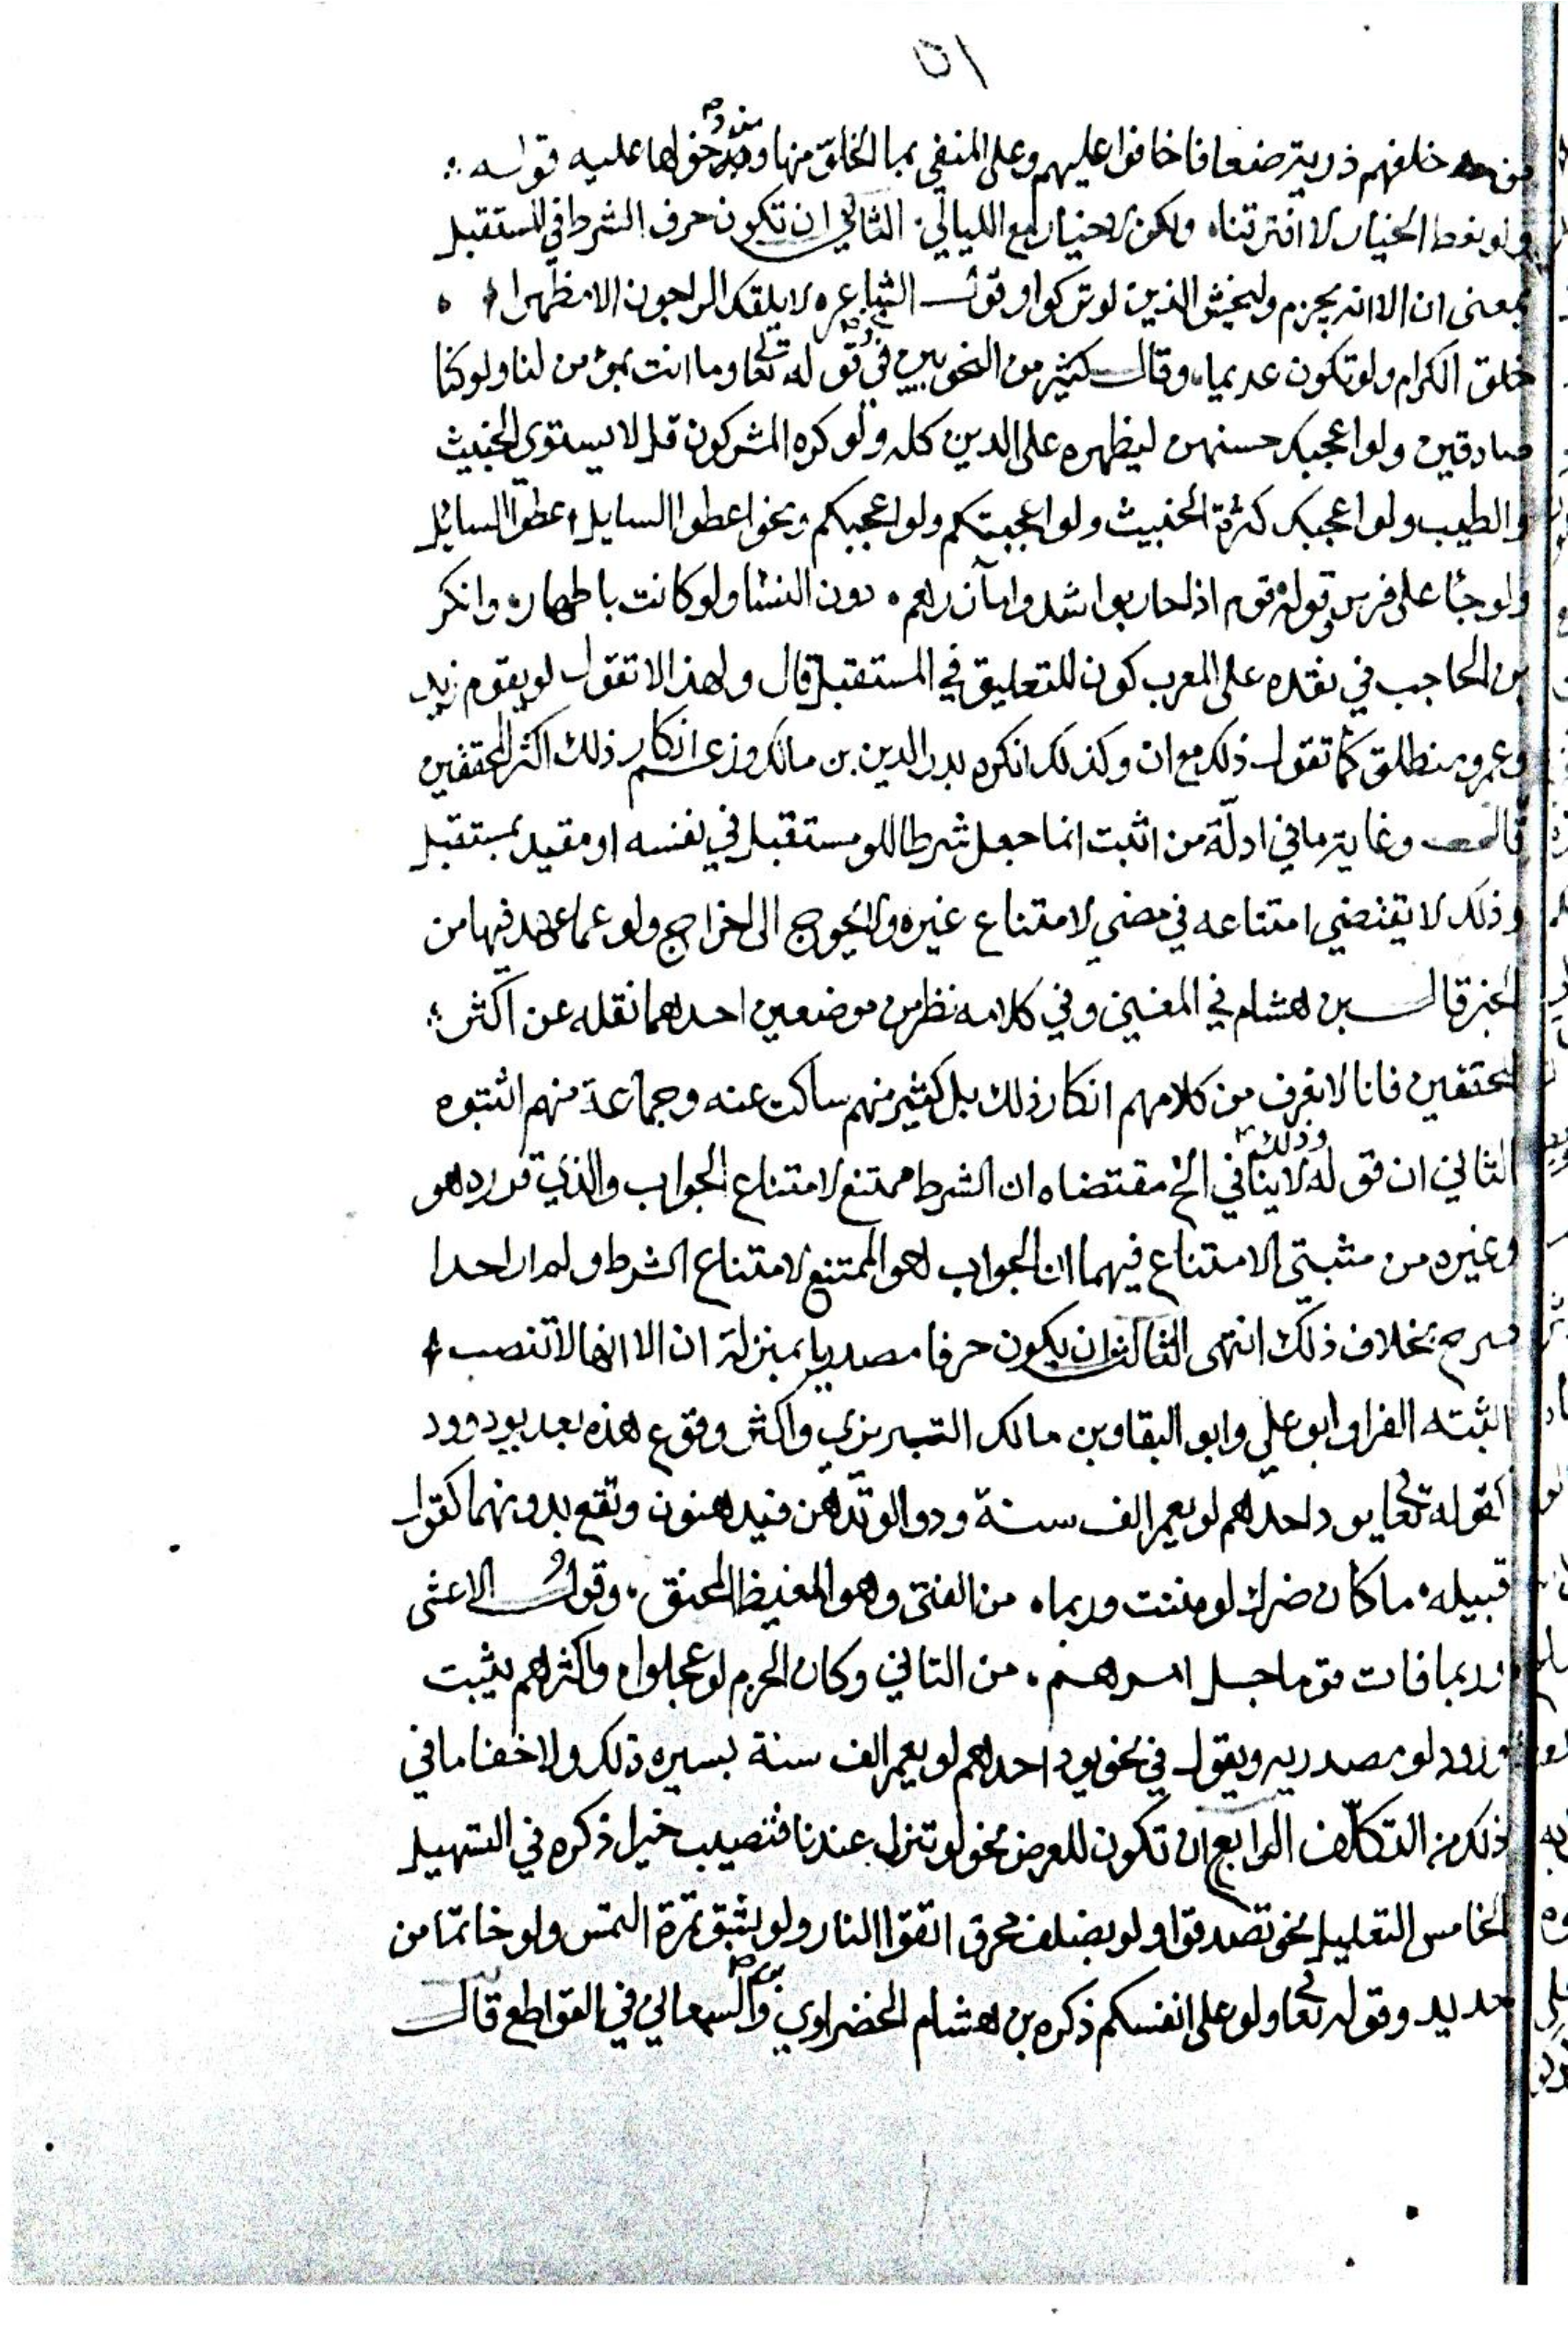 ٥١
من خلفهم ذرية ضعافا خافوا عليهم وعلى المنفي بما الخلو منها وندر دخولها عليه قوله
ولو نعط الخيار لا افترقنا ولكن لا خيار مع الليالي الثاني ان تكون حرف الشرط في المستقبل
بمعنى ان الا انه يجزم وليخش الذين لو تركوا وقول الشاعر لا يلفك الراجون الا مظهرا
خلق الكرام ولو تكون عديما وقال كثير من النحويين في قوله تعا وما انت بمؤمن لنا ولو كنا
صادقين ولو اعجبك حسنهن ليظهره على الدين كله ولو كره المشركون قل لا يستوي الخبيث
والطيب ولو اعجبك كثرة الخبيث ولو اعجبتكم ولو اعجبكم ونحو اعطوا السايل اعطوا السايل
ولو جا على فرس وقوله قوم اذا حاربوا شدوا مآزرهم دون النسا ولو كانت باطهار وانكر
بن الحاجب في نقده على المعرب كون للتعليق في المستقبل قال ولهذا لا تقول لو يقوم زيد
وعمرو منطلق كما تقول ذلك مع ان وكذلك انكره بدر الدين بن مالك وزعم انكار ذلك اكثر المحققين
قال وغاية ما في ادلة من اثبت انما جعل شرطا للو مستقبل في نفسه او مقيد بمستقبل
وذلك لا يقتضي امتناعه في مضي لامتناع غيره ولا يحوج الى اخراج ولو عما عهد فيها من
الخبر قال بن هشام في المغني وفي كلامه نظر من موضعين احدهما نقله عن اكثر
المحققين فانا لا نعرف من كلامهم انكار ذلك بل كثير منهم ساكت عنه وجماعة منهم اثبتوه
الثاني ان قوله وذلك لا ينافي الخ مقتضاه ان الشرط ممتنع لامتناع الجواب والذي قرره هو
وغيره من مثبتي الامتناع فيهما ان الجواب هو الممتنع لامتناع الشرط ولم ار احدا
صرح بخلاف ذلك انتهى الثالث ان يكون حرفا مصدريا بمنزلة ان الا انها لا تنصب
اثبته الفرا وابو علي وابو البقا وبن مالك التبريزي واكثر وقوع هذه بعد يود وود
كقوله تعا يود احدهم لو يعمر الف سنة ودوا لو تدهن فيدهنون وتقع بدونهما كقول
قبيله ما كان ضرك لو مننت وربما من الفتى وهو المغيظ المحنق وقول الاعشى
وربما فات قوما جل امرهم من التاني وكان الحزم لو عجلوا واكثرهم يثبت
ورود لو مصدريه ويقول في نحو يود احدهم لو يعمر الف سنة بسيره ذلك ولا خفا ما في
ذلك من التكلف الرابع ان تكون للعرض نحو لو تنزل عندنا فتصيب خيرا ذكره في التسهيل
الخامس التعليل نحو تصدقوا ولو بضلف محرق اتقوا النار ولو بشق تمرة التمس ولو خاتما من
حديد وقوله تعا ولو على انفسكم ذكره بن هشام الخضراوي وبن السمعاني في القواطع قال